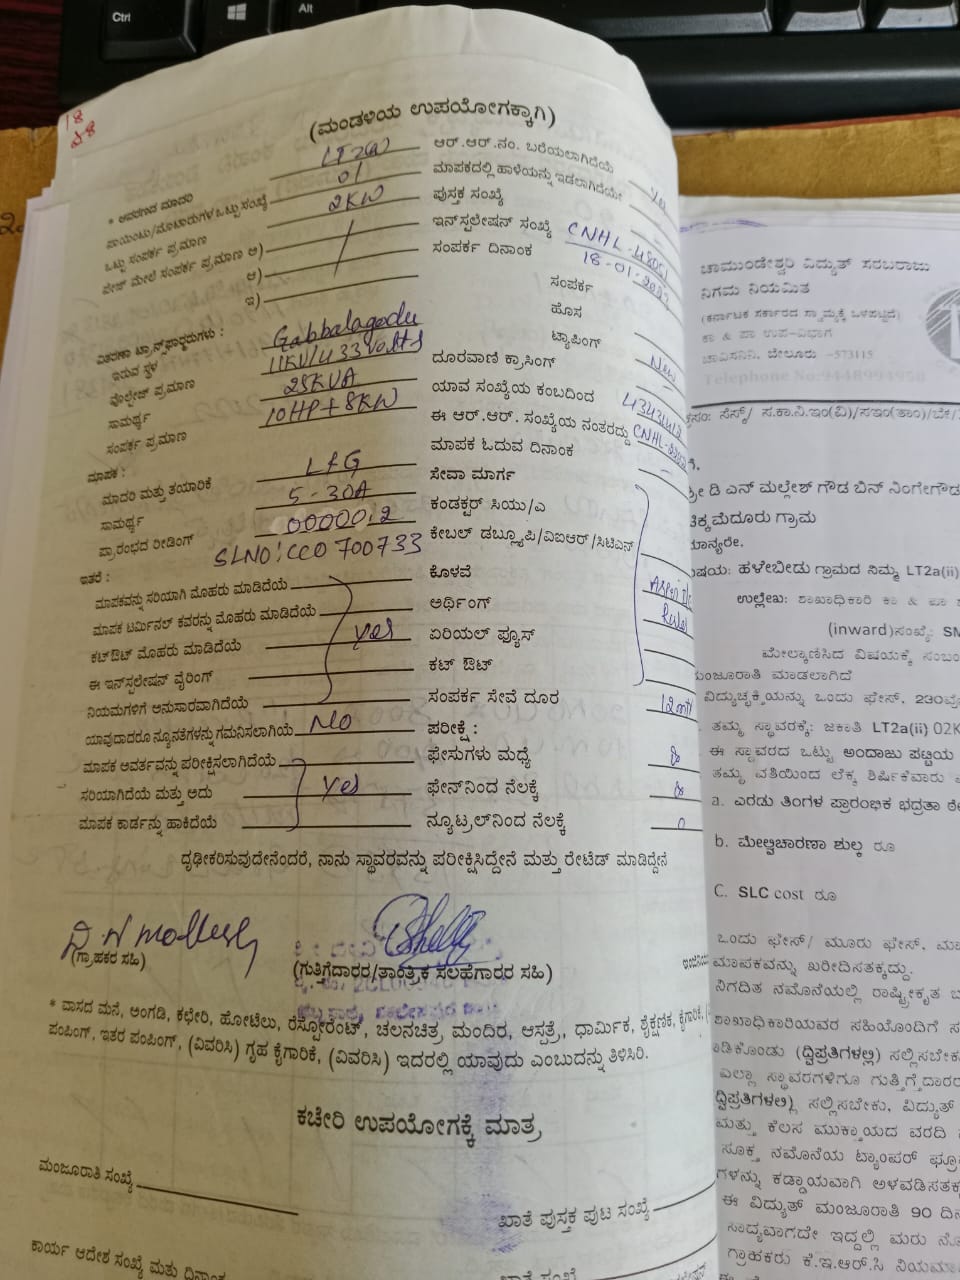 Ctrl
Alt
18
(ಮಂಡಳಿಯ ಉಪಯೋಗಕ್ಕಾಗಿ)
* ಆವರಣದ ಮಾದರಿ LT2(a)
ಪಾಯಿಂಟು/ಮೋಟಾರುಗಳ ಒಟ್ಟು ಸಂಖ್ಯೆ 01
ಒಟ್ಟು ಸಂಪರ್ಕ ಪ್ರಮಾಣ 2KW
ಫೇಜ್ ಮೇಲೆ ಸಂಪರ್ಕ ಪ್ರಮಾಣ ಅ)
ಆ)
ಇ)
ವಿತರಣಾ ಟ್ರಾನ್ಸ್‌ಫಾರ್ಮರುಗಳು :
ಇರುವ ಸ್ಥಳ Gabbalagodu
ವೋಲ್ಟೇಜ್ ಪ್ರಮಾಣ 11KV/433 Volts
ಸಾಮರ್ಥ್ಯ 25KVA
ಸಂಪರ್ಕ ಪ್ರಮಾಣ 10HP+8KW
ಮಾಪಕ :
ಮಾದರಿ ಮತ್ತು ತಯಾರಿಕೆ L&G
ಸಾಮರ್ಥ್ಯ 5-30A
ಪ್ರಾರಂಭದ ರೀಡಿಂಗ್ 00000.2
SLNO: CCO 700733
ಇತರೆ :
ಮಾಪಕವನ್ನು ಸರಿಯಾಗಿ ಮೊಹರು ಮಾಡಿದೆಯೆ
ಮಾಪಕ ಟರ್ಮಿನಲ್ ಕವರನ್ನು ಮೊಹರು ಮಾಡಿದೆಯೆ
ಕಟ್‌ಔಟ್ ಮೊಹರು ಮಾಡಿದೆಯೆ yes
ಈ ಇನ್‌ಸ್ಟಲೇಷನ್ ವೈರಿಂಗ್
ನಿಯಮಗಳಿಗೆ ಅನುಸಾರವಾಗಿದೆಯೆ
ಯಾವುದಾದರೂ ನ್ಯೂನತೆಗಳನ್ನು ಗಮನಿಸಲಾಗಿಯೆ No
ಮಾಪಕ ಆವರ್ತವನ್ನು ಪರೀಕ್ಷಿಸಲಾಗಿದೆಯೆ
ಸರಿಯಾಗಿದೆಯೆ ಮತ್ತು ಅದು yes
ಮಾಪಕ ಕಾರ್ಡನ್ನು ಹಾಕಿದೆಯೆ
ಆರ್.ಆರ್.ನಂ. ಬರೆಯಲಾಗಿದೆಯೆ
ಮಾಪಕದಲ್ಲಿ ಹಾಳೆಯನ್ನು ಇಡಲಾಗಿದೆಯೇ
ಪುಸ್ತಕ ಸಂಖ್ಯೆ
ಇನ್‌ಸ್ಟಲೇಷನ್ ಸಂಖ್ಯೆ
ಸಂಪರ್ಕ ದಿನಾಂಕ
ಸಂಪರ್ಕ
ಹೊಸ
ಟ್ಯಾಪಿಂಗ್ New
ದೂರವಾಣಿ ಕ್ರಾಸಿಂಗ್
ಯಾವ ಸಂಖ್ಯೆಯ ಕಂಬದಿಂದ
ಈ ಆರ್.ಆರ್. ಸಂಖ್ಯೆಯ ನಂತರದ್ದು
ಮಾಪಕ ಓದುವ ದಿನಾಂಕ
ಸೇವಾ ಮಾರ್ಗ
ಕಂಡಕ್ಟರ್ ಸಿಯು/ಎ
ಕೇಬಲ್ ಡಬ್ಲ್ಯೂಪಿ/ವಿಐಆರ್/ಸಿಟಿಎಸ್
ಕೊಳವೆ
ಅರ್ಥಿಂಗ್
ಏರಿಯಲ್ ಫ್ಯೂಸ್
ಕಟ್ ಔಟ್
ಸಂಪರ್ಕ ಸೇವೆ ದೂರ 12 mtr
ಪರೀಕ್ಷೆ :
ಫೇಸುಗಳು ಮಧ್ಯೆ
ಫೇಸ್‌ನಿಂದ ನೆಲಕ್ಕೆ
ನ್ಯೂಟ್ರಲ್‌ನಿಂದ ನೆಲಕ್ಕೆ 0
ದೃಢೀಕರಿಸುವುದೇನೆಂದರೆ, ನಾನು ಸ್ಥಾವರವನ್ನು ಪರೀಕ್ಷಿಸಿದ್ದೇನೆ ಮತ್ತು ರೇಟೆಡ್ ಮಾಡಿದ್ದೇನೆ
D.N mallesh
(ಗ್ರಾಹಕರ ಸಹಿ)
(ಗುತ್ತಿಗೆದಾರರ/ತಾಂತ್ರಿಕ ಸಲಹೆಗಾರರ ಸಹಿ)
* ವಾಸದ ಮನೆ, ಅಂಗಡಿ, ಕಛೇರಿ, ಹೋಟೆಲು, ರೆಸ್ಟೋರೆಂಟ್, ಚಲನಚಿತ್ರ ಮಂದಿರ, ಆಸ್ಪತ್ರೆ, ಧಾರ್ಮಿಕ, ಶೈಕ್ಷಣಿಕ, ಕೈಗಾರಿಕೆ,
ಪಂಪಿಂಗ್, ಇತರ ಪಂಪಿಂಗ್, (ವಿವರಿಸಿ) ಗೃಹ ಕೈಗಾರಿಕೆ, (ವಿವರಿಸಿ) ಇದರಲ್ಲಿ ಯಾವುದು ಎಂಬುದನ್ನು ತಿಳಿಸಿರಿ.
ಕಚೇರಿ ಉಪಯೋಗಕ್ಕೆ ಮಾತ್ರ
ಮಂಜೂರಾತಿ ಸಂಖ್ಯೆ
ಖಾತೆ ಪುಸ್ತಕ ಪುಟ ಸಂಖ್ಯೆ
ಕಾರ್ಯ ಆದೇಶ ಸಂಖ್ಯೆ ಮತ್ತು ದಿನಾಂಕ
ಚಾಮುಂಡೇಶ್ವರಿ ವಿದ್ಯುತ್ ಸರಬರಾಜು
ನಿಗಮ ನಿಯಮಿತ
(ಕರ್ನಾಟಕ ಸರ್ಕಾರದ ಸ್ವಾಮ್ಯಕ್ಕೆ ಒಳಪಟ್ಟದೆ)
ಕಾ & ಪಾ ಉಪ-ವಿಭಾಗ
ಚಾವಿಸನಿನಿ, ಬೇಲೂರು -573115
Telephone No:9448994950
ಶ್ರೀ ಡಿ ಎನ್ ಮಲ್ಲೇಶ್ ಗೌಡ ಬಿನ್ ನಿಂಗೇಗೌಡ
ಚಿಕ್ಕಮೆದೂರು ಗ್ರಾಮ
ಮಾನ್ಯರೇ.
ವಿಷಯ: ಹಳೇಬೀಡು ಗ್ರಾಮದ ನಿಮ್ಮ LT2a(ii)
ಉಲ್ಲೇಖ: ಶಾಖಾಧಿಕಾರಿ ಕಾ & ಪಾ
(inward)ಸಂಖ್ಯೆ: SM
ಮೇಲ್ಕಾಣಿಸಿದ ವಿಷಯಕ್ಕೆ ಸಂಬಂ
ಮಂಜೂರಾತಿ ಮಾಡಲಾಗಿದೆ
ವಿದ್ಯುಚ್ಛಕ್ತಿಯನ್ನು ಒಂದು ಫೇಸ್, 230
ತಮ್ಮ ಸ್ಥಾವರಕ್ಕೆ: ಜಕಾತಿ LT2a(ii) 02K
ಈ ಸ್ಥಾವರದ ಒಟ್ಟು ಅಂದಾಜು ಪಟ್ಟಿಯ
ತಮ್ಮ ವತಿಯಿಂದ ಲೆಕ್ಕ ಶೀರ್ಷಿಕೆವಾರು
a. ಎರಡು ತಿಂಗಳ ಪ್ರಾರಂಭಿಕ ಭದ್ರತಾ ಠೇ
b. ಮೇಲ್ವಿಚಾರಣಾ ಶುಲ್ಕ ರೂ
C. SLC cost ರೂ
ಒಂದು ಫೇಸ್/ ಮೂರು ಫೇಸ್,
ಮಾಪಕವನ್ನು ಖರೀದಿಸತಕ್ಕದ್ದು.
ನಿಗದಿತ ನಮೂನೆಯಲ್ಲಿ ರಾಷ್ಟ್ರೀಕೃತ
ಶಾಖಾಧಿಕಾರಿಯವರ ಸಹಿಯೊಂದಿಗೆ
(ದ್ವಿಪ್ರತಿಗಳಲ್ಲಿ) ಸಲ್ಲಿಸಬೇಕ
ಎಲ್ಲಾ ಸ್ಥಾವರಗಳಿಗೂ ಗುತ್ತಿಗೆದಾರರ
ದ್ವಿಪ್ರತಿಗಳಲ್ಲಿ) ಸಲ್ಲಿಸಬೇಕು, ವಿದ್ಯುತ್
ಮತ್ತು ಕೆಲಸ ಮುಕ್ತಾಯದ ವರದಿ
ಸೂಕ್ತ ನಮೂನೆಯ ಟ್ಯಾಂಪರ್ ಪ್ರೂ
ಗಳನ್ನು ಕಡ್ಡಾಯವಾಗಿ ಅಳವಡಿಸತಕ್ಕ
ಈ ವಿದ್ಯುತ್ ಮಂಜೂರಾತಿ 90 ದಿನ
ಸಾಧ್ಯವಾಗದೇ ಇದ್ದಲ್ಲಿ ಮರು
ಗ್ರಾಹಕರು ಕೆ.ಇ.ಆರ್.ಸಿ ನಿಯಮಾ